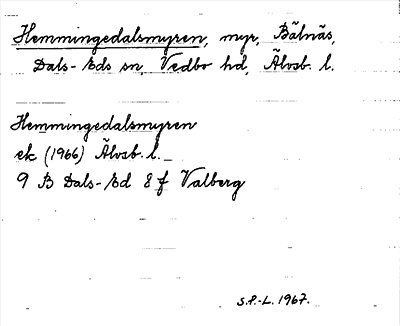 Hemmingedalsmyren, myr, Bälnäs,
Dals-Eds sn, Vedbo hd, Älvsb. l.
Hemmingedalsmyren
ek (1966) Älvsb. l.
9 B Dals-Ed 8 f Valberg
S.P.-L. 1967.